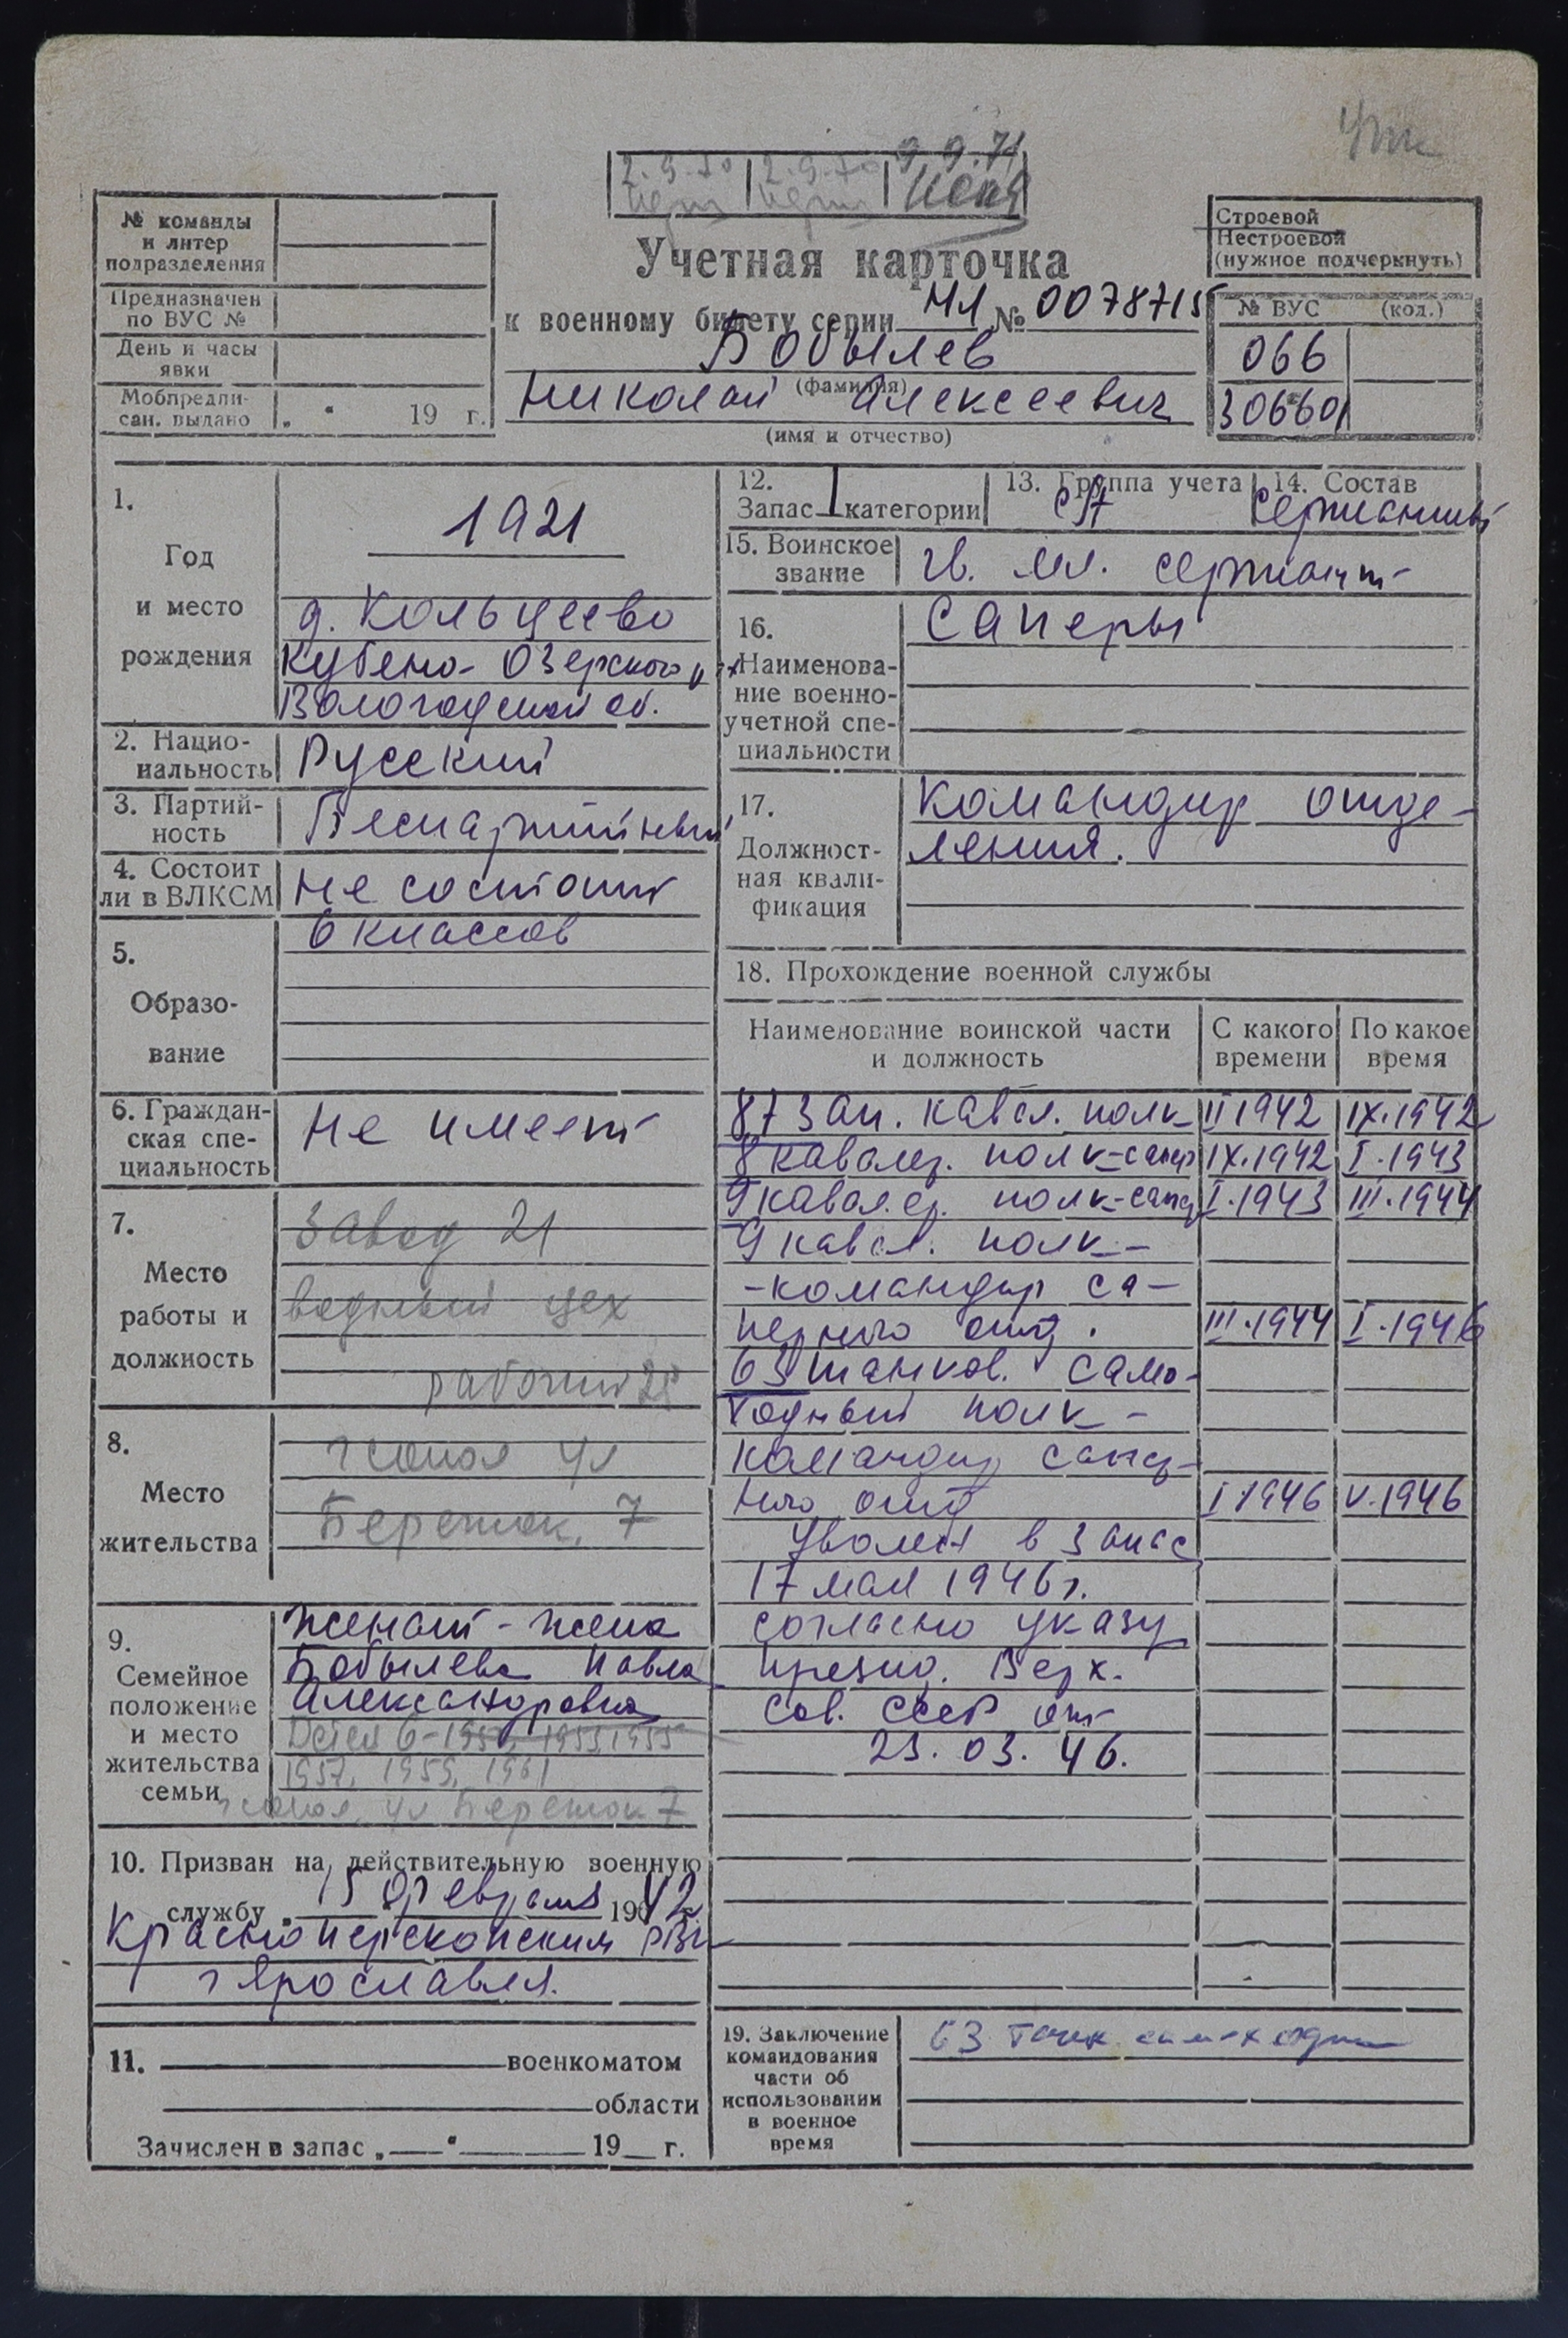 2.9.70 2.9.70 9.9.71
№ команды
и литер
подразделения
Предназначен
по ВУС №
День и часы
явки
Мобпредпи-
сан. выдано „ “ 19 г.
Учетная карточка
к военному билету серии НЛ № 0078715
Бобылев
(фамилия)
Николай Алексеевич
(имя и отчество)
Строевой
Нестроевой
(нужное подчеркнуть)
№ ВУС (код.)
066
306601
1.
Год
и место
рождения
1921
д. Кольцеево
Кубено-Озерского
Вологодской об.
2. Нацио-
нальность Русский
3. Партий-
ность Беспартийный
4. Состоит
ли в ВЛКСМ Не состоит
5.
Образо-
вание
6 классов
6. Граждан-
ская спе-
циальность Не имеет
7.
Место
работы и
должность
Завод 21
водный цех
рабочий
8.
Место
жительства
ул
Бережок, 7
9.
Семейное
положение
и место
жительства
семьи
Женат - жена
Бобылева Павла
Александровна
Детей 6- 1953, 1955
1957, 1959, 1961
ул Бережок 7
10. Призван на действительную военную
службу „ 15 февраля 1942
Красноперекопским РВК
г Ярославля.
11. военкоматом
области
Зачислен в запас „ “ 19 г.
12.
Запас 1 категории
13. Группа учета СА
14. Состав Сержанты
15. Воинское
звание гв. мл. сержант
16.
Наименова-
ние военно-
учетной спе-
циальности
Саперы
17.
Должност-
ная квали-
фикация
Командир отде-
ления.
18. Прохождение военной службы
Наименование воинской части
и должность
С какого
времени
По какое
время
87 зап. кавал. полк II 1942 IX.1942
8 кавалер. полк-сапер IX.1942 I.1943
9 кавалер. полк-сапер I.1943 III.1944
9 кавал. полк-
-командир са-
перного отд. III.1944 I.1946
63 танков. само-
ходный полк-
командир сапер-
ного отд I 1946 V.1946
Уволен в запас
17 мая 1946 г.
согласно указу
Презид. Верх.
Сов. СССР от
23.03.46.
19. Заключение
командования
части об
использовании
в военное
время
63 танк. самоходн